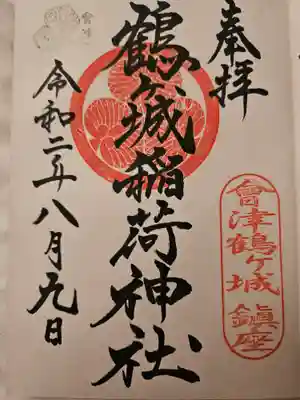 奉拝
會津鶴ヶ城 鎮座
鶴ヶ城稲荷神社
令和二年八月九日